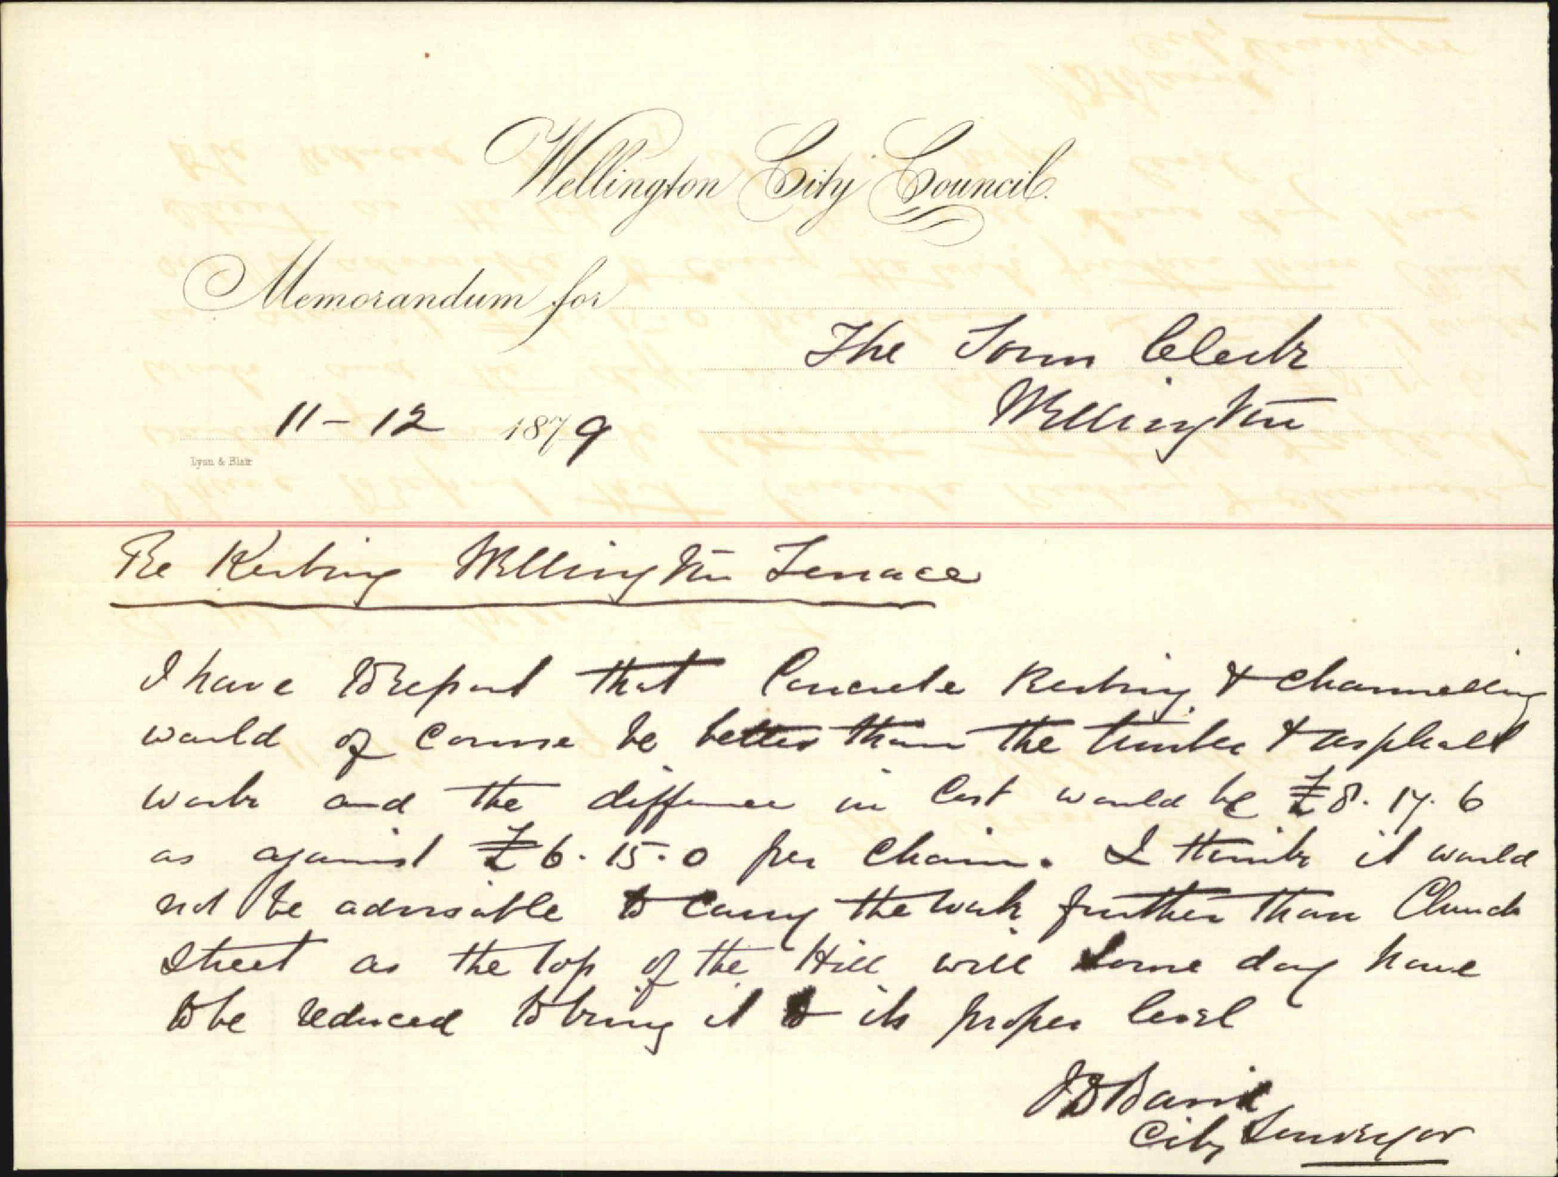 Wellington City Council.
Memorandum for
The Town Clerk
Wellington
11-12 1879
Lyon & Blair
Re Kerbing Wellington Terrace
I have to report that Concrete Kerbing & Channelling
would of course be better than the timber & asphalt
work and the difference in Cost would be £8.17.6
as against £6.15.0 per chain. I think it would
not be advisable to carry the work further than Church
Street as the top of the Hill will some day have
to be reduced to bring it to its proper level
J D Baird
City Surveyor